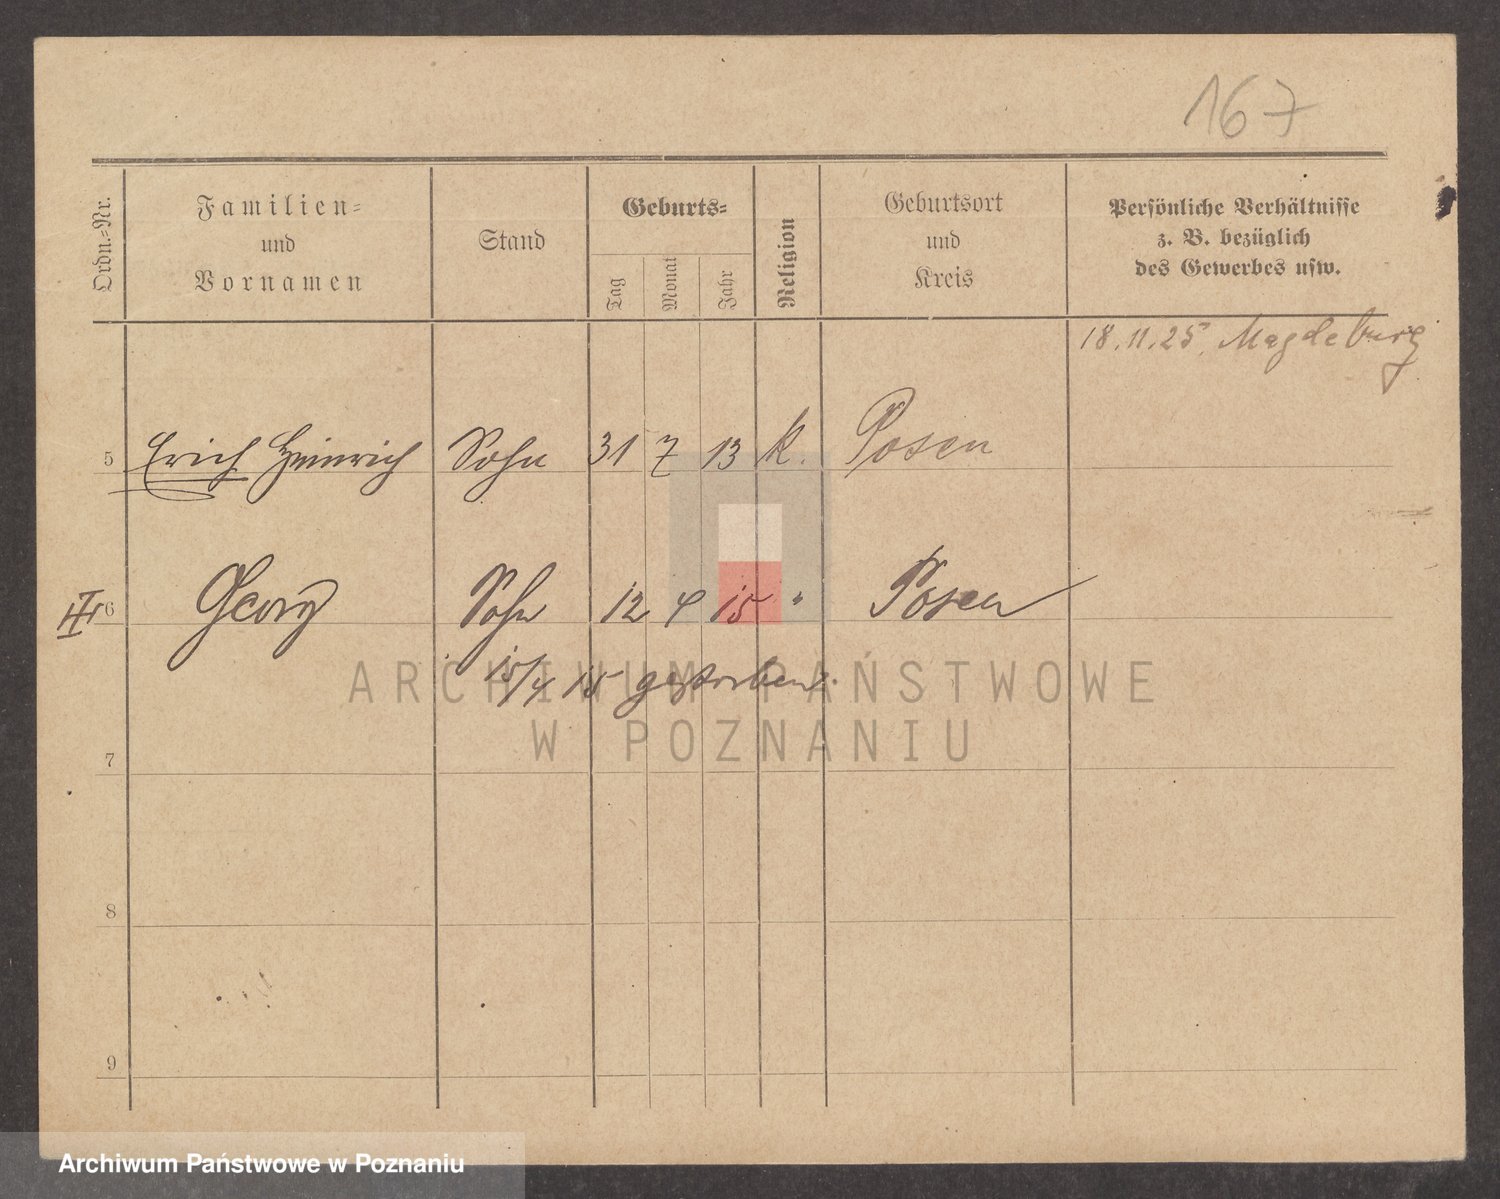 167
Ordn.-Nr.
Familien-
und
Vornamen
Stand
Geburts-
Tag
Monat
Jahr
Religion
Geburtsort
und
Kreis
Persönliche Verhältnisse
z. B. bezüglich
des Gewerbes usw.
18.11.25. Magdeburg
5 Erich Heinrich Sohn 31 7 13 k. Posen
6 Georg Sohn 12 4 15 " Posen
15/4 15 gestorben.
7
8
9
ARCHIWUM PAŃSTWOWE
W POZNANIU
Archiwum Państwowe w Poznaniu